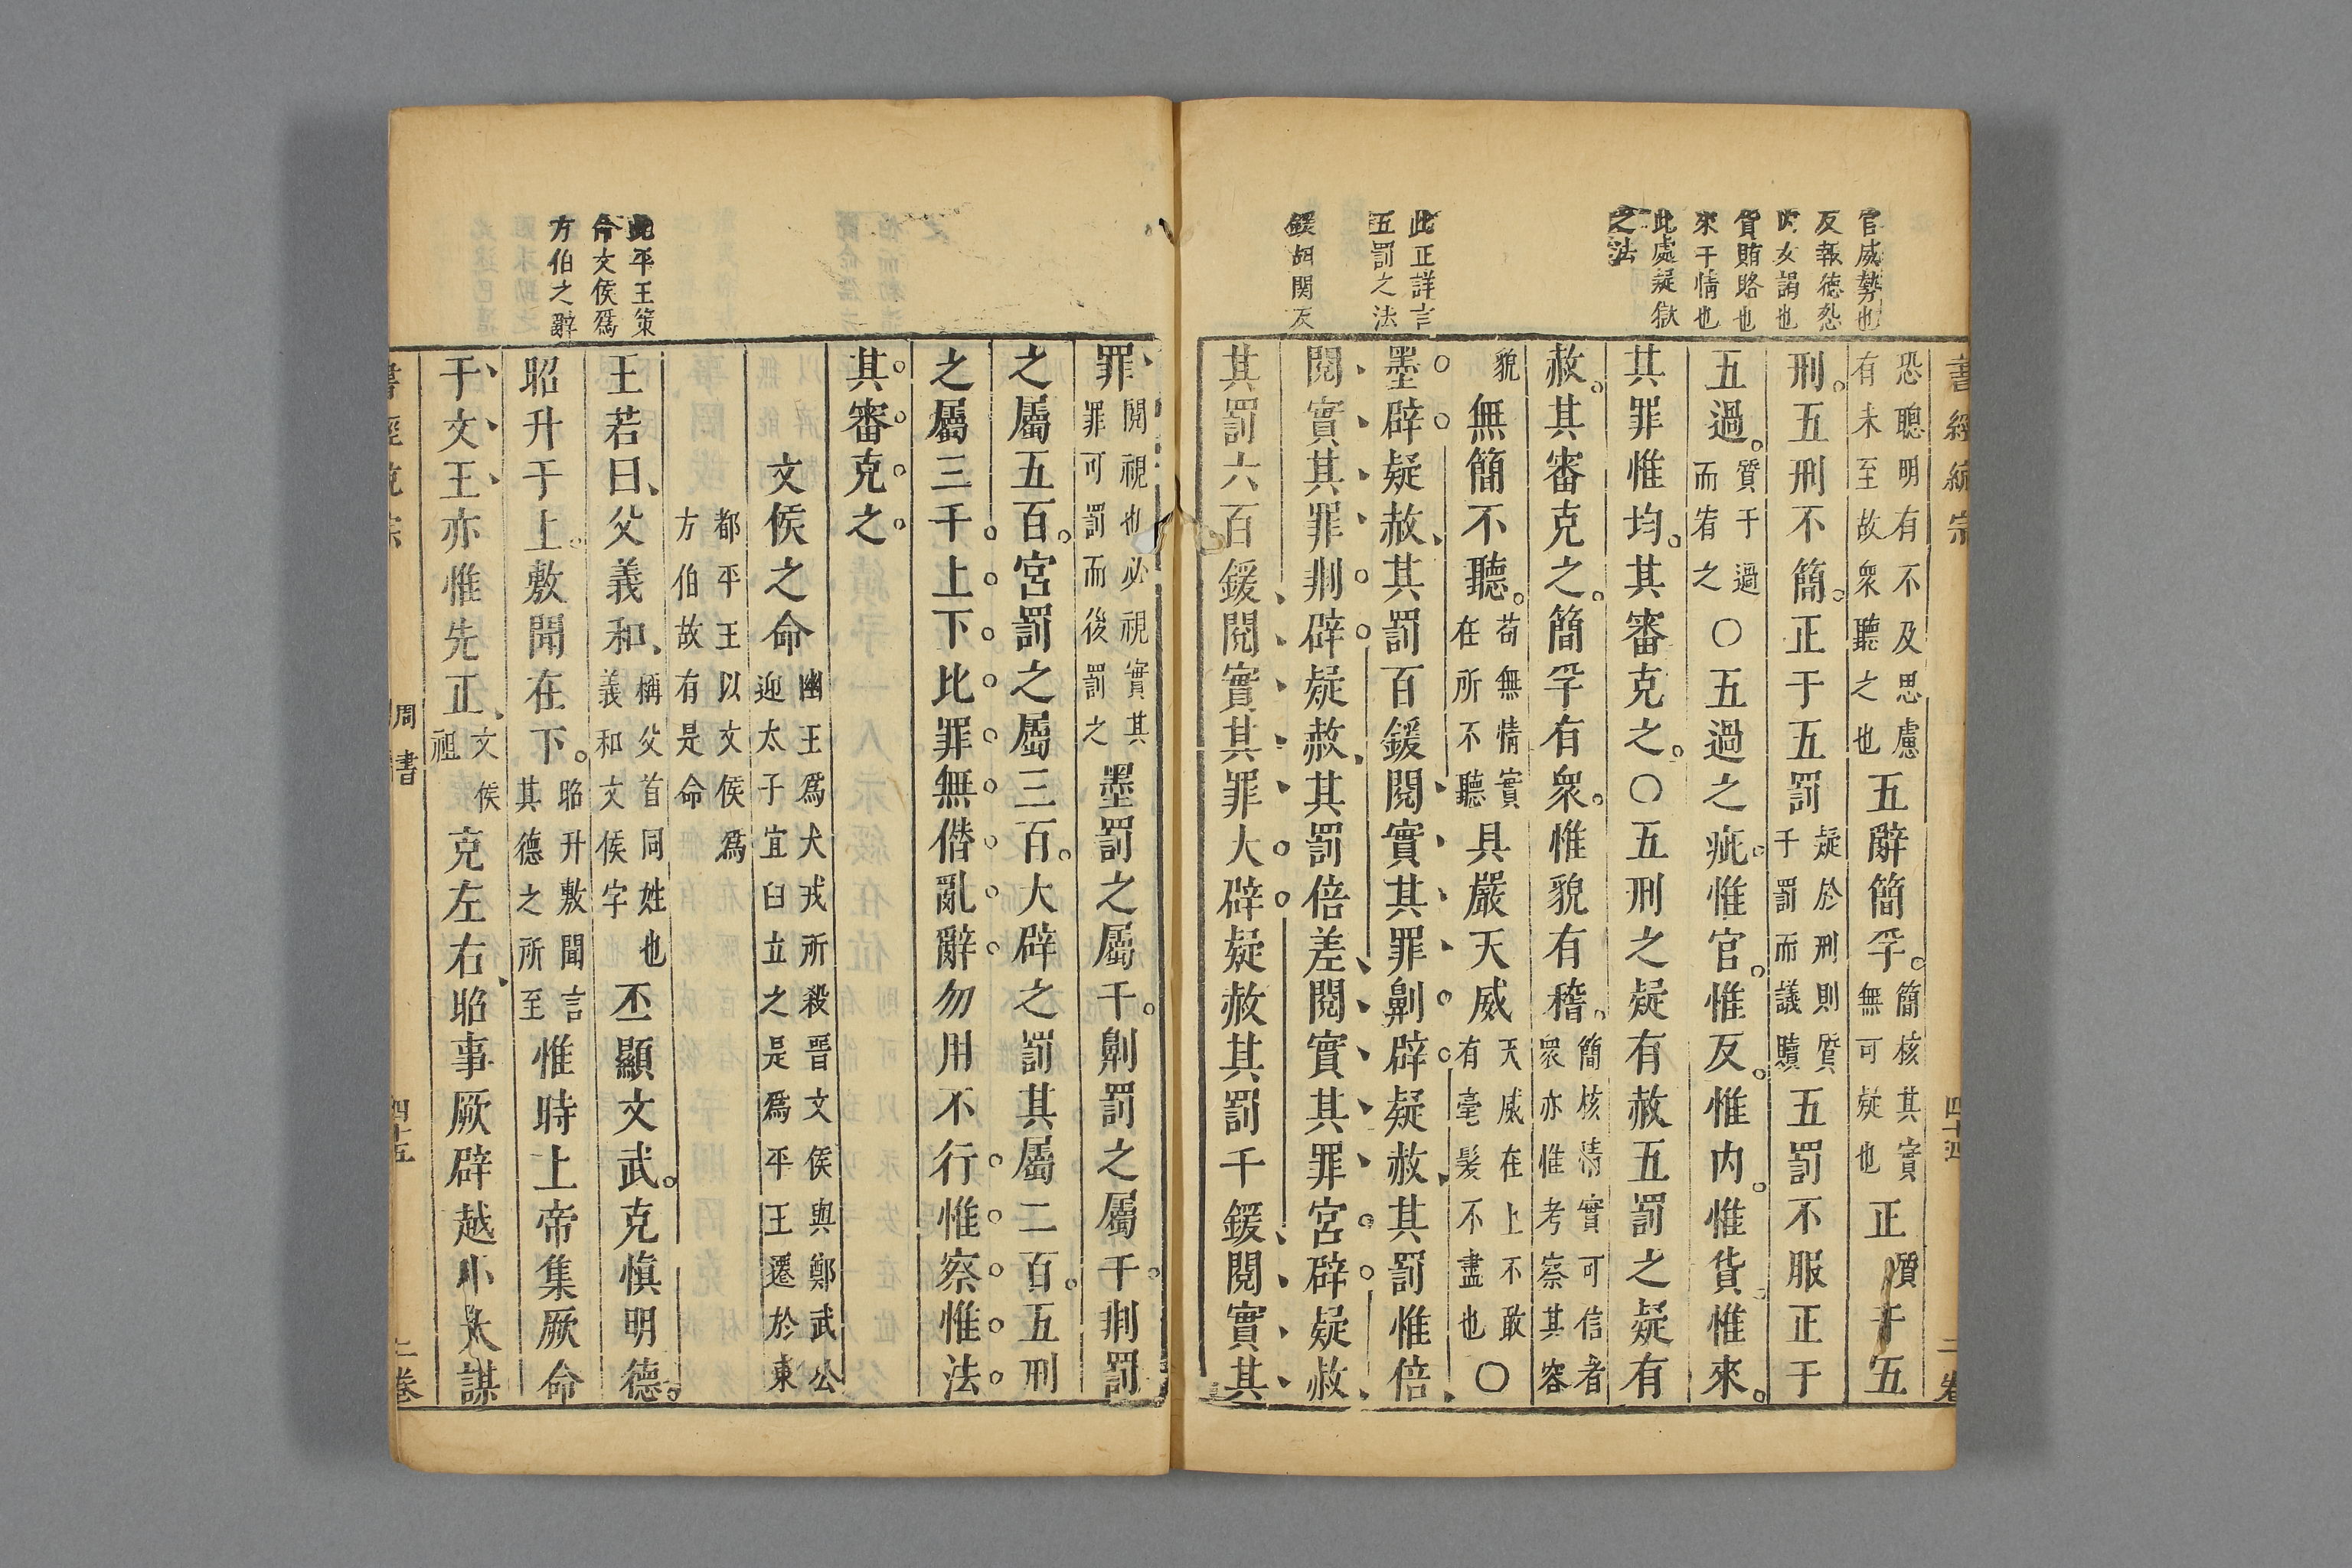 書經統宗
四十四
二卷
官威勢也
反報德怨
内女謁也
貨賄賂也
來干情也
此處疑獄
之法
此正詳言
五罰之法
鍰胡関反
恐聽明有不及思慮
有未至故衆聽之也
五辭簡孚
簡核其實
無可疑也
正
質于五
刑五刑不簡正于五罰
疑於刑則質
于罰而議贖
五罰不服正于
五過
質于過
而宥之
〇五過之疵惟官惟反惟内惟貨惟來
其罪惟均其審克之〇五刑之疑有赦五罰之疑有
赦其審克之簡孚有衆惟貌有稽
簡核情實可信者
衆亦惟考察其容
貌
無簡不聽
苟無情實
在所不聽
具嚴天威
天威在上不敢
有毫髮不盡也
〇
墨辟疑赦其罰百鍰閱實其罪劓辟疑赦其罰惟倍
閱實其罪剕辟疑赦其罰倍差閱實其罪宮辟疑赦
其罰六百鍰閱實其罪大辟疑赦其罰千鍰閱實其
此平王策
命文侯爲
方伯之辭
罪
閱視也必視實其
罪可罰而後罰之
墨罰之屬千劓罰之屬千剕罰
之屬五百宮罰之屬三百大辟之罰其屬二百五刑
之屬三千上下比罪無僭亂辭勿用不行惟察惟法
其審克之
文侯之命
幽王爲犬戎所殺晉文侯與鄭武公
迎太子宜臼立之是爲平王遷於東
都平王以文侯爲
方伯故有是命
王若曰父義和
稱父首同姓也
義和文侯字
丕顯文武克愼明德
昭升于上敷聞在下
昭升敷聞言
其德之所至
惟時上帝集厥命
于文王亦惟先正
文侯
祖
克左右昭事厥辟越小大謀
周書
四十五
二卷